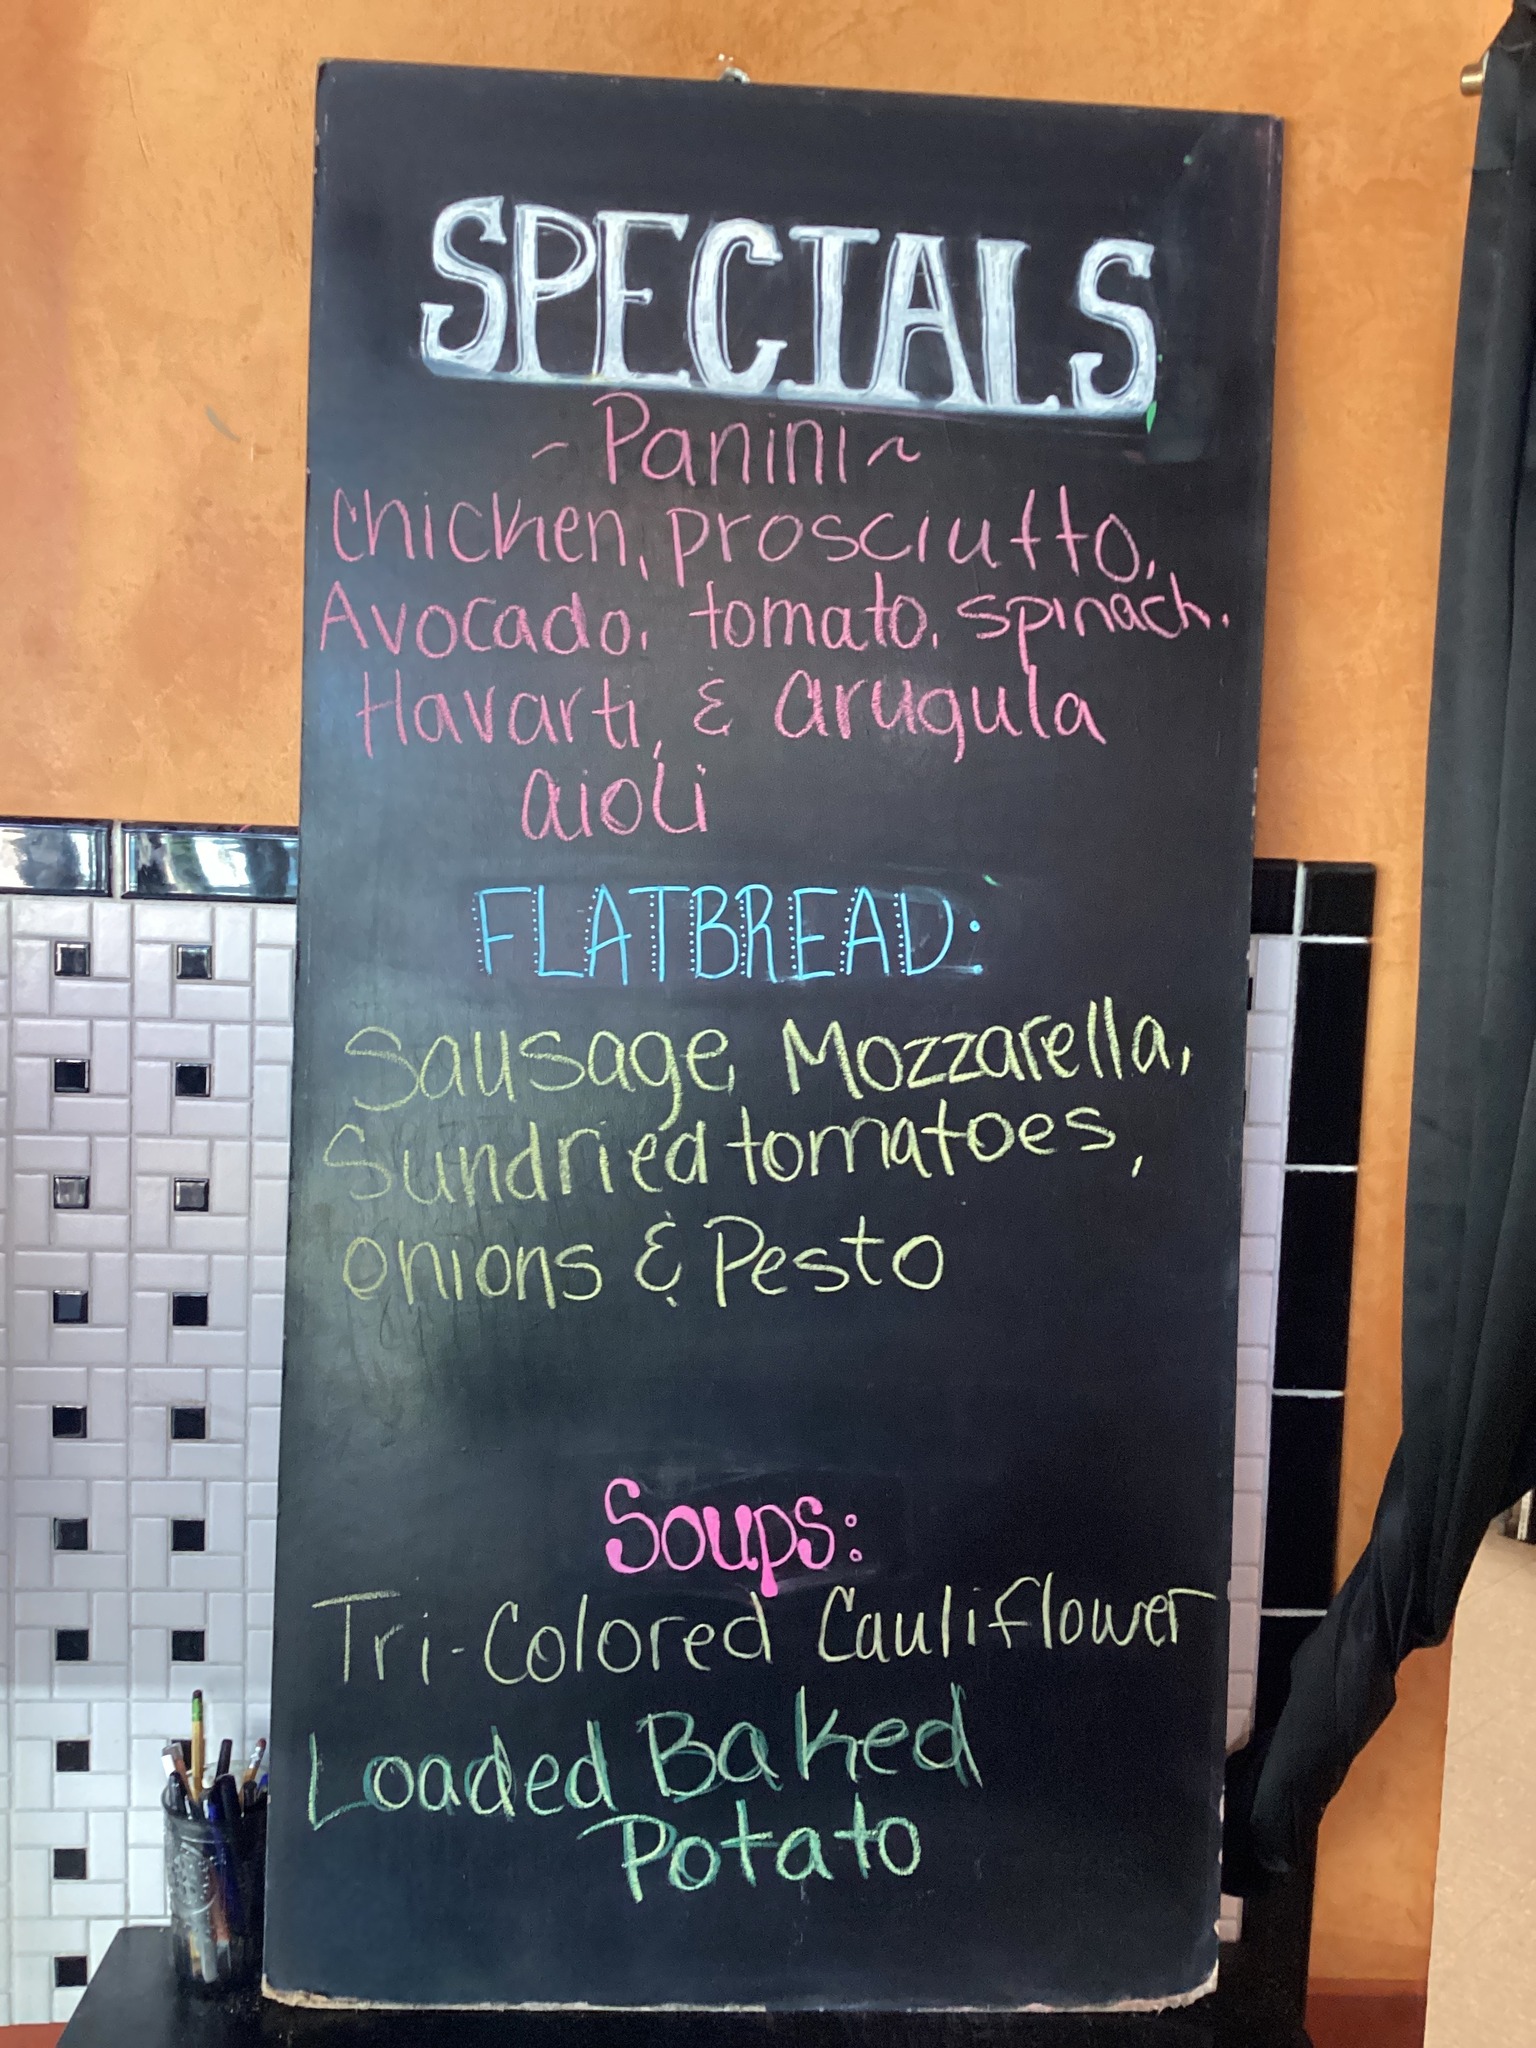 SPECIALS
~ Panini ~
Chicken, prosciutto,
Avocado, tomato, spinach,
Havarti, & arugula
aioli
FLATBREAD:
Sausage, Mozzarella,
Sundried tomatoes,
onions & Pesto
Soups:
Tri-Colored Cauliflower
Loaded Baked
Potato